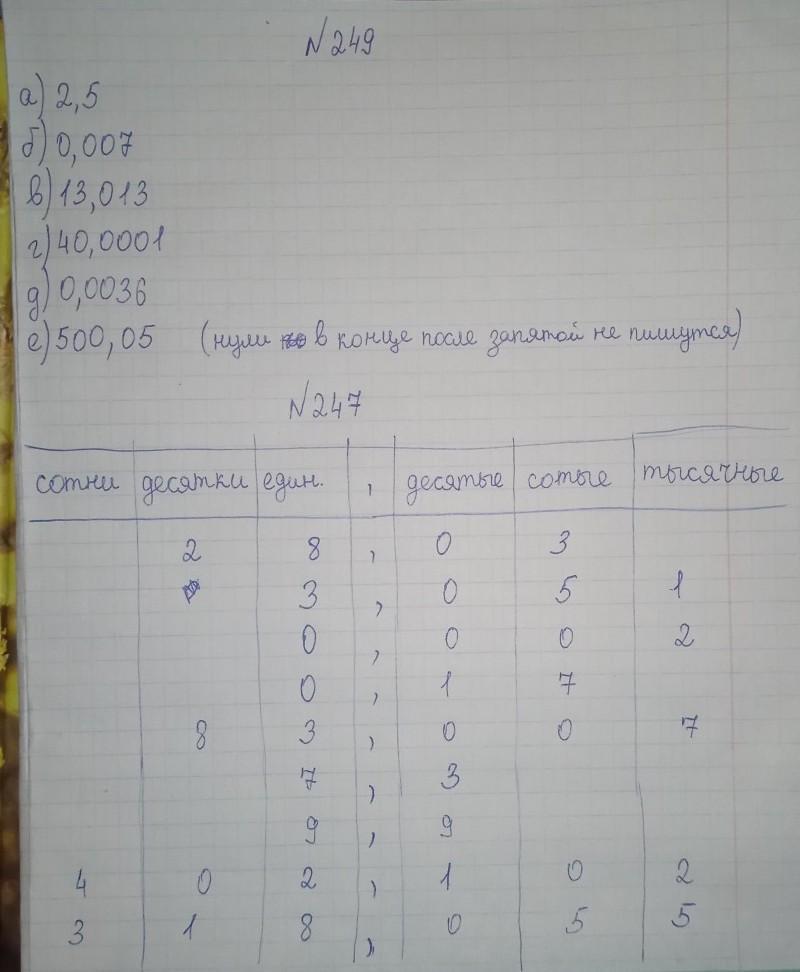 №249
а) 2,5
б) 0,007
в) 13,013
г) 40,0001
д) 0,0036
е) 500,05 (нули в конце после запятой не пишутся)
№247
сотни десятки един. , десятые сотые тысячные
2 8 , 0 3
3 , 0 5 1
0 , 0 0 2
0 , 1 7
8 3 , 0 0 7
7 , 3
9 , 9
4 0 2 , 1 0 2
3 1 8 , 0 5 5